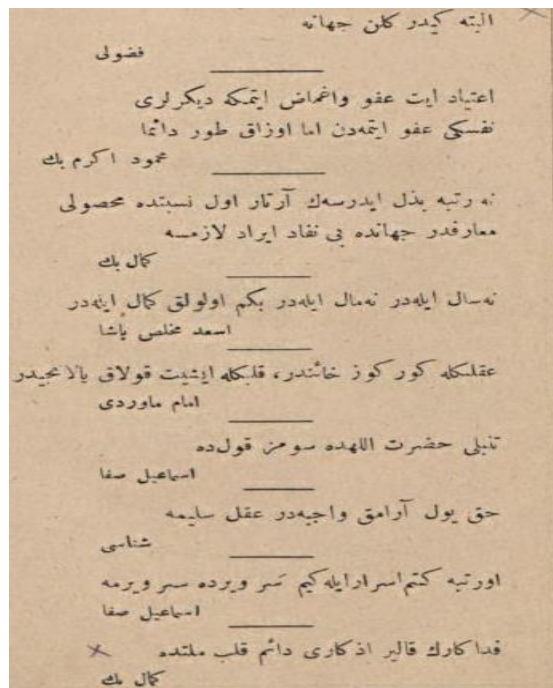 البته كیدر كلن جهانه
فضولی
اعتیاد ایت عفو واغماض ایتمكه دیكرلری
نفسكی عفو ایتمه‌دن اما اوزاق طور دائما
محمود اكرم بك
نه رتبه بذل ایدرسه‌ك آرتار اول نسبتده محصولی
معارفدر جهانده بی نفاد ایراد لازمسه
كمال بك
نه‌سال ایله‌در نه‌مال ایله‌در بكم اولولق كمال ایله‌در
اسعد مخلص پاشا
عقلكله كور كوز خائندر، قلبكله ایشیت قولاق یالانجیدر
امام ماوردی
تنبلی حضرت اللهده سومز قول‌ده
اسماعیل صفا
حق یول آرامق واجبه‌در عقل سلیمه
شناسی
اورتبه كتم اسرار ایله كیم سَر ویرده سر ویرمه
اسماعیل صفا
فداكارك قالیر اذكاری دائم قلب ملتده
كمال بك